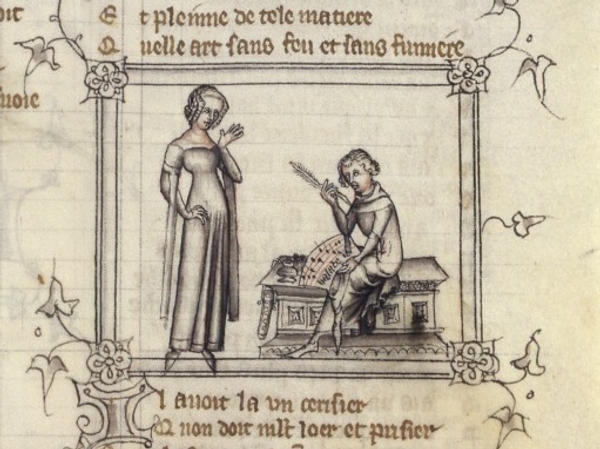 oit
Et pleinne de tele matiere
Quelle art sans feu et sans fumiere
uoie
Il auoit la vn cerisier
non doit mlt loer et prisier